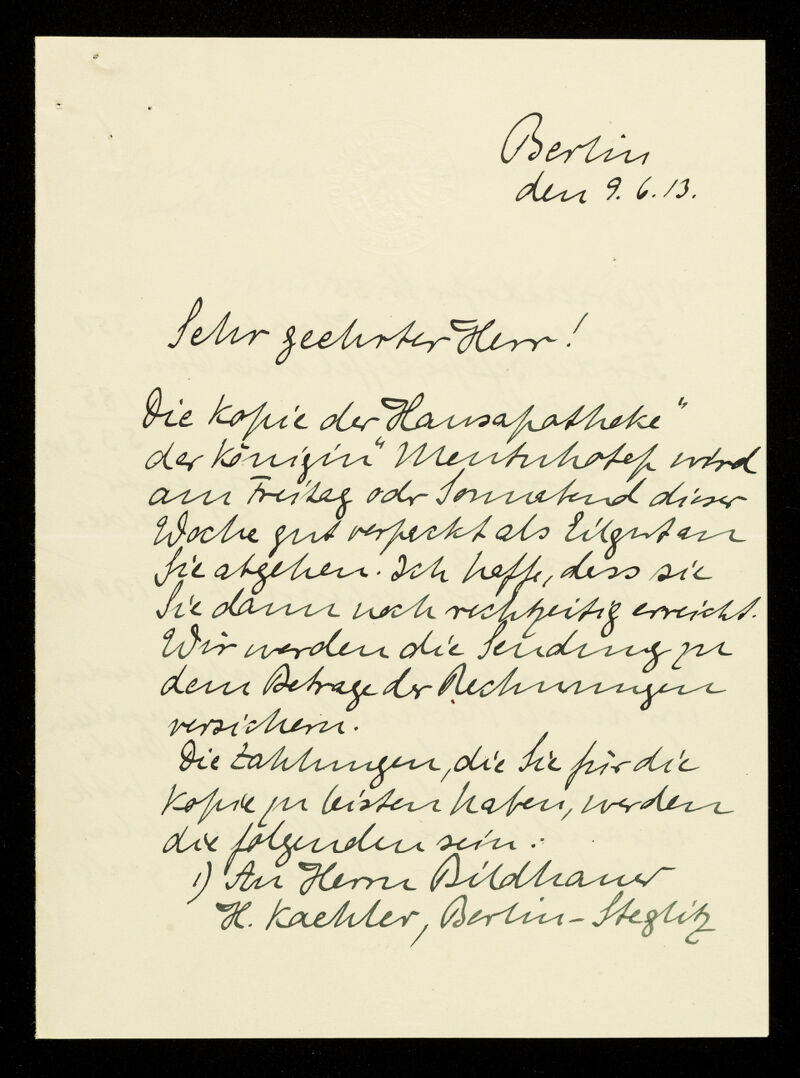 Berlin
den 9. 6. 13.
Sehr geehrter Herr!
Die Kopie der Hausapotheke"
der Königin" Mentuhotep wird
am Freitag odr Sonnabend dieser
Woche gut verpackt als Eilgut an
Sie abgehen. Ich hoffe, dass sie
Sie dann noch rechtzeitig erreicht.
Wir werden die Sendung zu
dem Betrage der Rechnungen
versichern.
Die Zahlungen, die Sie für die
Kopie zu leisten haben, werden
die folgenden sein:
1) An Herrn Bildhauer
H. Kaehler, Berlin-Steglitz